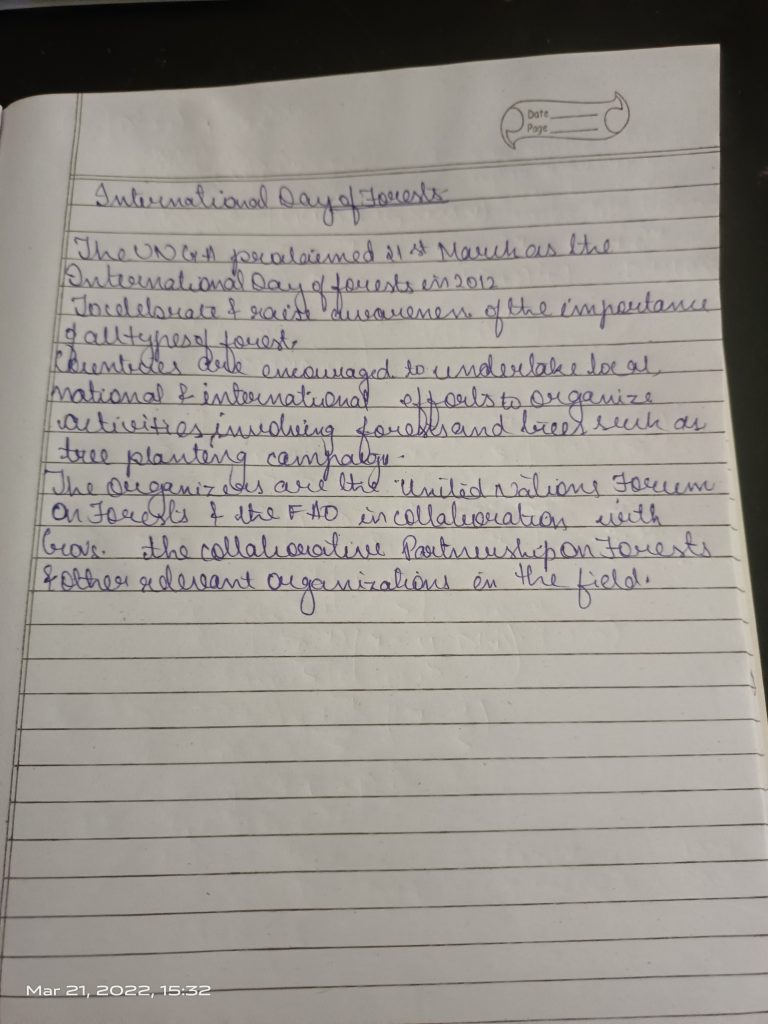 Date
Page
International Day of Forests
The UNGA proclaimed 21st March as the
International Day of forests in 2012
To celebrate & raise awareness of the importance
of all types of forest.
Countries are encouraged to undertake local,
national & international efforts to organize
activities involving forests and trees such as
tree planting campaign.
The Organizers are the United Nations Forum
On Forests & the FAO in collaboration with
Govs. the collaborative Partnership on Forests
& other relevant organizations in the field.
Mar 21, 2022, 15:32